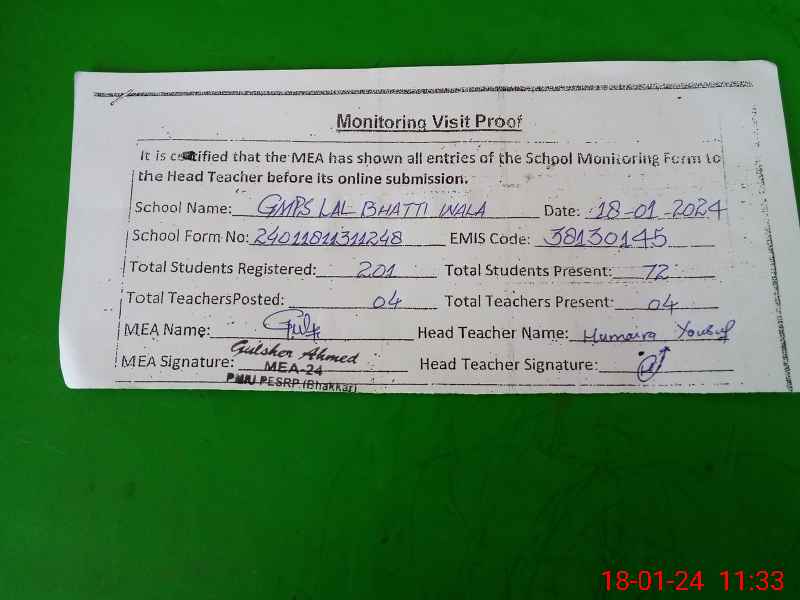 Monitoring Visit Proof
It is certified that the MEA has shown all entries of the School Monitoring Form to
the Head Teacher before its online submission.
School Name: GMPS LAL BHATTI WALA Date: 18-01-2024
School Form No: 24011811311248 EMIS Code: 38130145
Total Students Registered: 201 Total Students Present: 72
Total TeachersPosted: 04 Total Teachers Present: 04
MEA Name: Head Teacher Name: Humaira Yousuf
MEA Signature: Gulsher Ahmed Head Teacher Signature:
MEA-24
PMIU PESRP (Bhakkar)
18-01-24 11:33